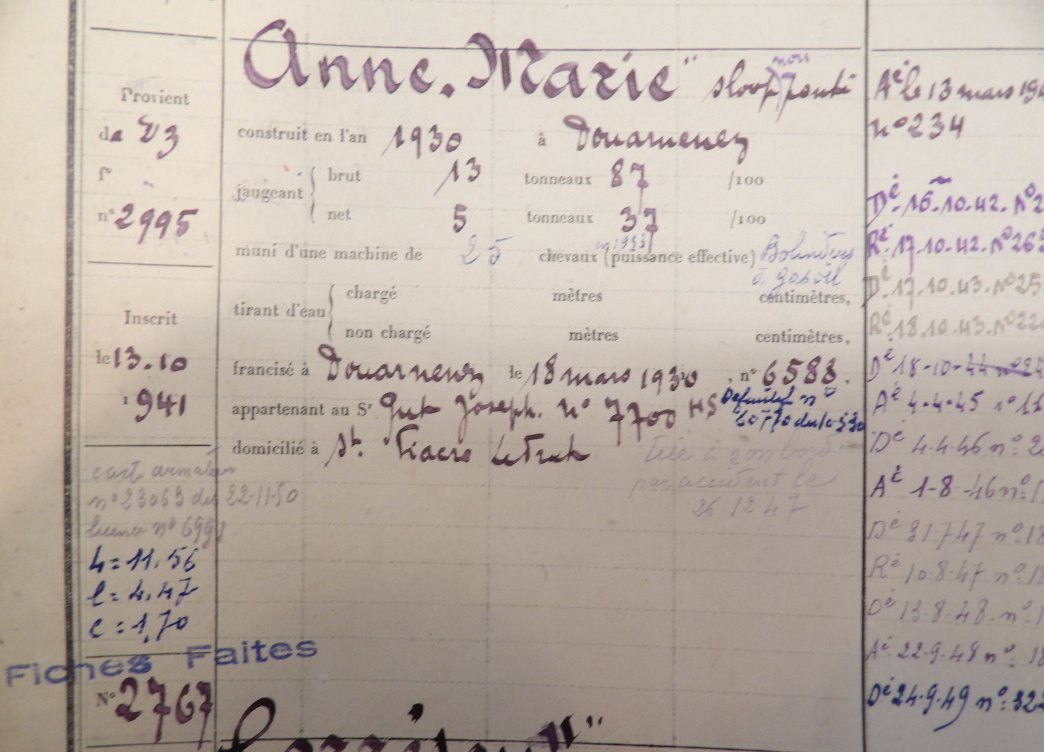 Provient
da D3
f°
n° 2995
Inscrit
le 13.10
1941
carte armateur
n° 23063 du 22-11-50
licence n° 6991
L = 11.56
l = 4.47
c = 1,70
Fiches Faites
N° 2767
Anne-Marie" sloop non ponté
construit en l'an 1930 à Douarnenez
jaugeant { brut 13 tonneaux 87 /100
net 5 tonneaux 37 /100
muni d'une machine de 25 chevaux (puissance effective) Bolinders
à gasoil
tirant d'eau { chargé mètres centimètres,
non chargé mètres centimètres,
francisé à Douarnenez le 18 mars 1930, n° 6588.
appartenant au Sr Joseph. N° 7700 HS Définitif n°
domicilié à St.
tué à son bord
par accident le
26 12 47
Aé le 13 mars 194
n° 234
Dé. 16-10-42. N° 2
Ré. 17.10.42. N° 26
Dé. 17.10.43. N° 25
Ré. 18.10.43. N° 22
Dé 18-10-44 n° 2
Aé 4-4-45 n° 1
Dé 4.4.46 n° 2
Aé 1-8-46 n° 1
Dé 31.7.47 n° 18
Ré 10.8.47 n° 18
Dé 13.8.48. n° 1
Aé 22.9.48 n° 18
Dé 24-9.49 n° 322